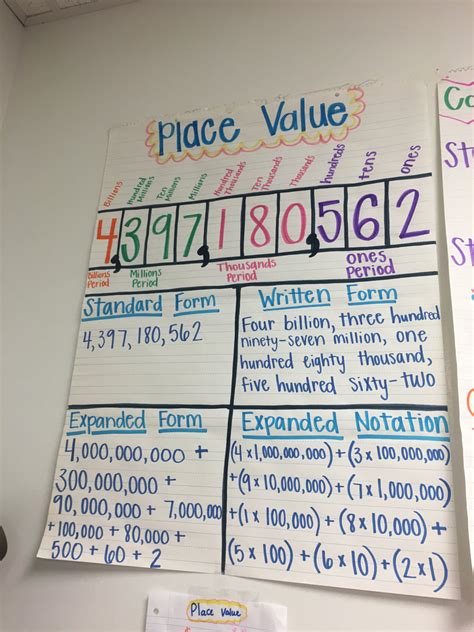 Place Value
Billions Hundred Millions Ten Millions Millions Hundred Thousands Ten Thousands Thousands hundreds tens ones
4,397,180,562
Billions Period Millions Period Thousands Period ones Period
Standard Form
4,397,180,562
Written Form
Four billion, three hundred
ninety-seven million, one
hundred eighty thousand,
five hundred sixty-two
Expanded Form
4,000,000,000 +
300,000,000 +
90,000,000 + 7,000,000
+100,000 + 80,000 +
500 + 60 + 2
Expanded Notation
(4x1,000,000,000)+(3x100,000,000)
+(9x10,000,000)+(7x1,000,000)
+(1x100,000)+(8x10,000)+
(5x100)+(6x10)+(2x1)
Place Value
Ca
St
St